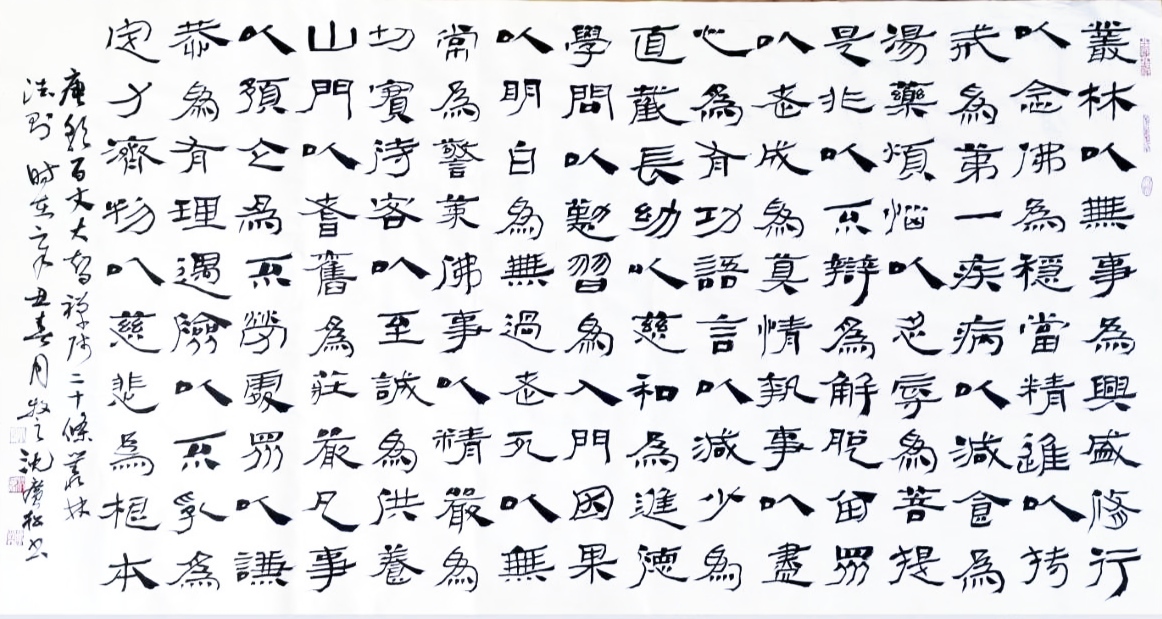 叢林以無事為興盛修行
以念佛為穩當精進以持
戒為第一疾病以減食為
湯藥煩惱以忍辱為菩提
是非以不辯為解脫留眾
以老成為真情執事以盡
心為有功語言以減少為
直截長幼以慈和為進德
學問以勤習為入門因果
以明白為無過老死以無
常為警策佛事以精嚴為
切實待客以至誠為供養
山門以耆舊為莊嚴凡事
以預立為不勞處眾以謙
恭為有理遇險以不亂為
定力濟物以慈悲為根本
百丈大智禪師二十條叢林
法則 時在辛丑春月牧之沈廣松書